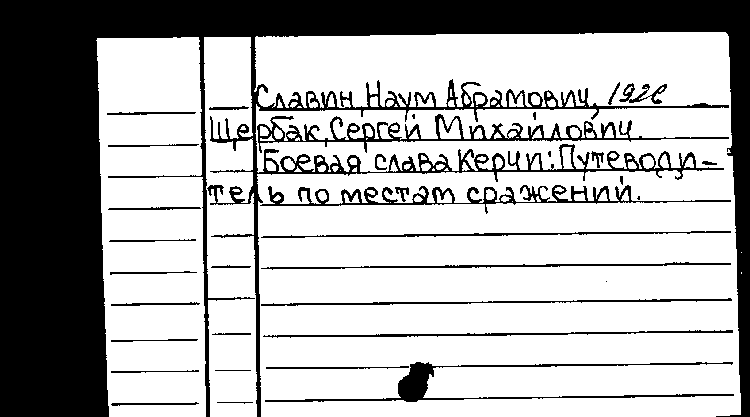 Славин, Наум Абрамович, 1926
Щербак, Сергей Михайлович.
Боевая слава Керчи: Путеводи-
тель по местам сражений.